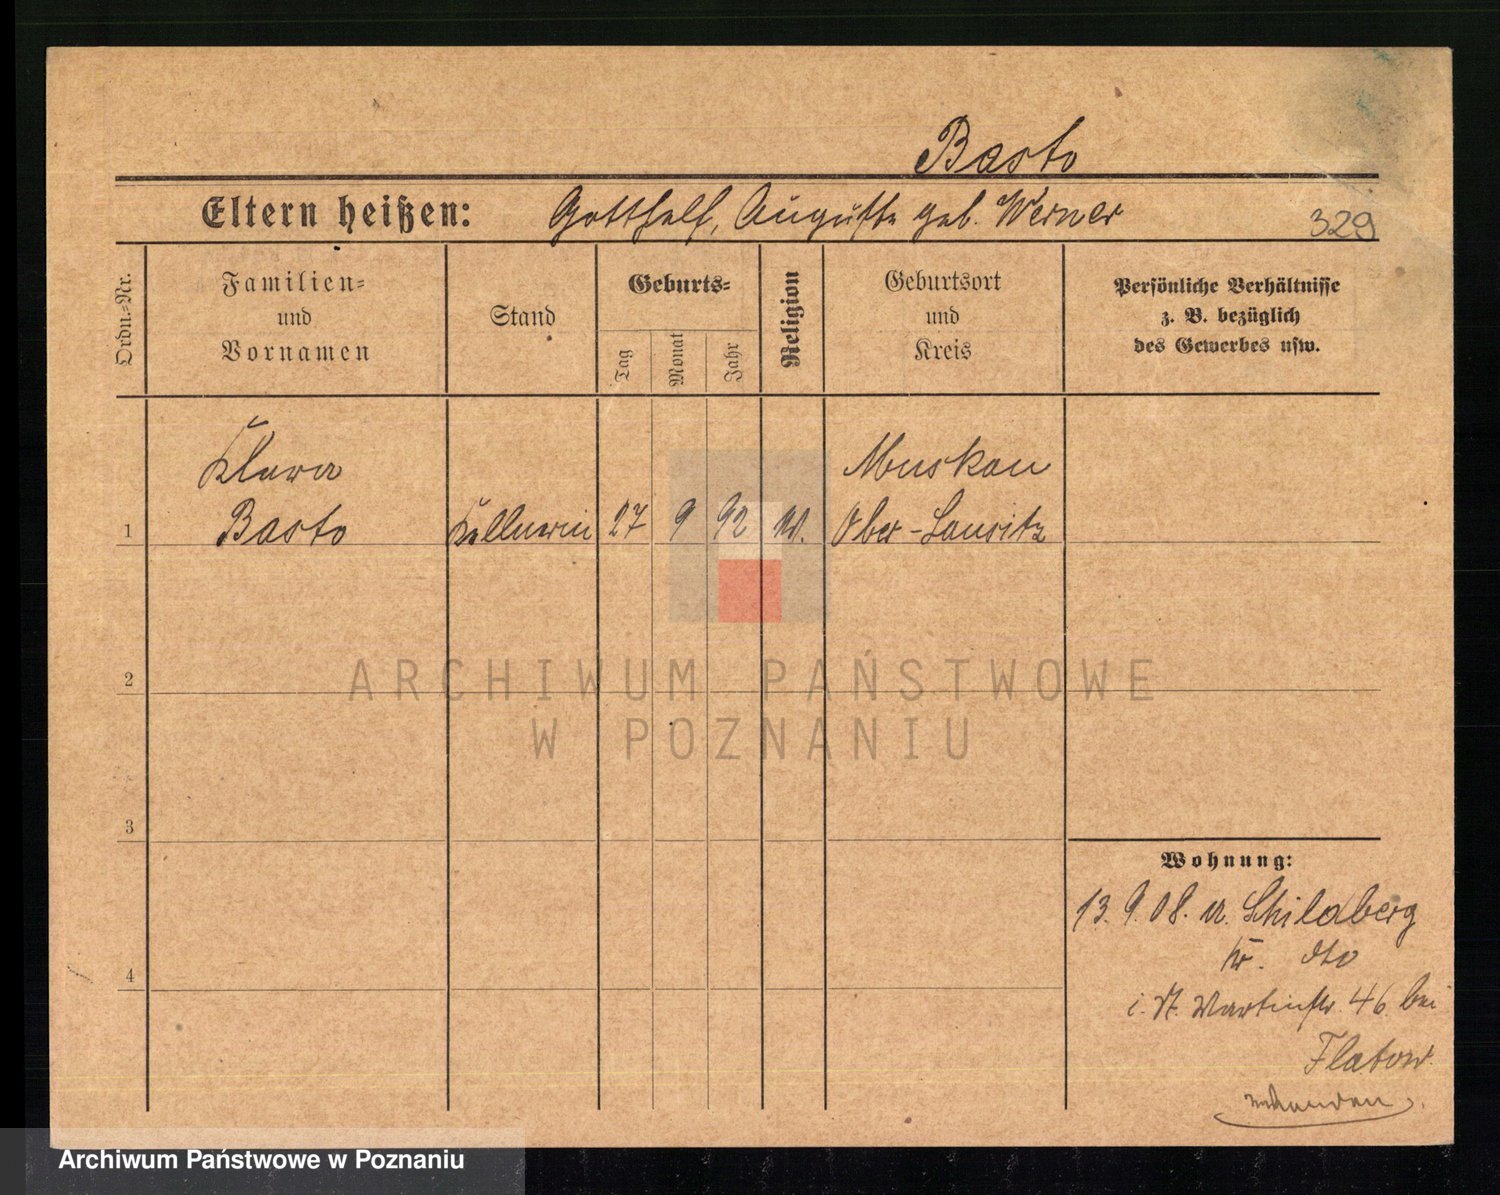 Basto
Eltern heißen: Gotthelf, Auguste geb. Werner
329
Ordn.-Nr.
Familien-
und
Vornamen
Stand
Geburts-
Tag
Monat
Jahr
Religion
Geburtsort
und
Kreis
Persönliche Verhältnisse
z. B. bezüglich
des Gewerbes usw.
Klara
Muskau
1 Basto Kellnerin 27 9 92 Ober-Lausitz
2
ARCHIWUM PAŃSTWOWE
W POZNANIU
3
Wohnung:
13. 9. 08. Schildberg
4 Kr. dto
St. Martinstr. 46 bei
Flatow.
Archiwum Państwowe w Poznaniu